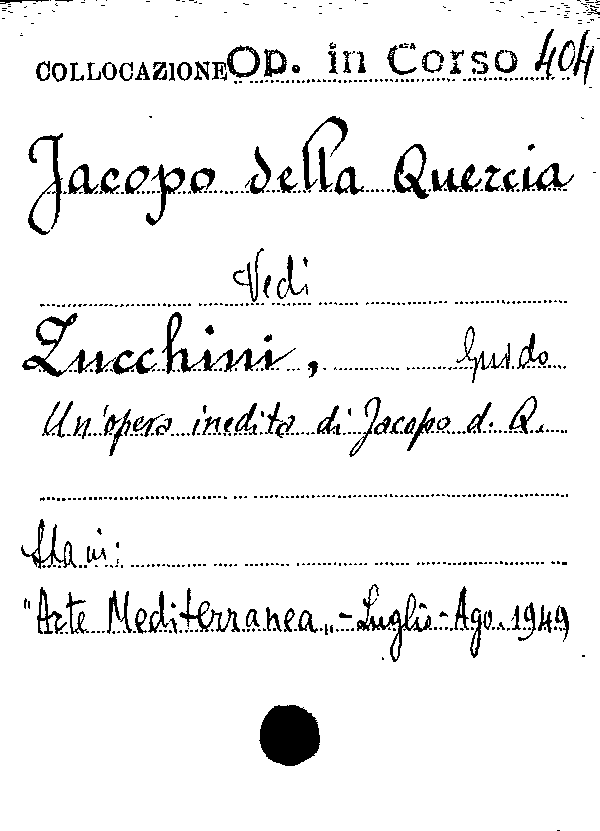 COLLOCAZIONE Op. in Corso 404
Jacopo della Quercia
Vedi
Zucchini, Guido
Un'opera inedita di Jacopo d. Q.
Sta in:
"Arte Mediterranea„ - Luglio - Ago. 1949